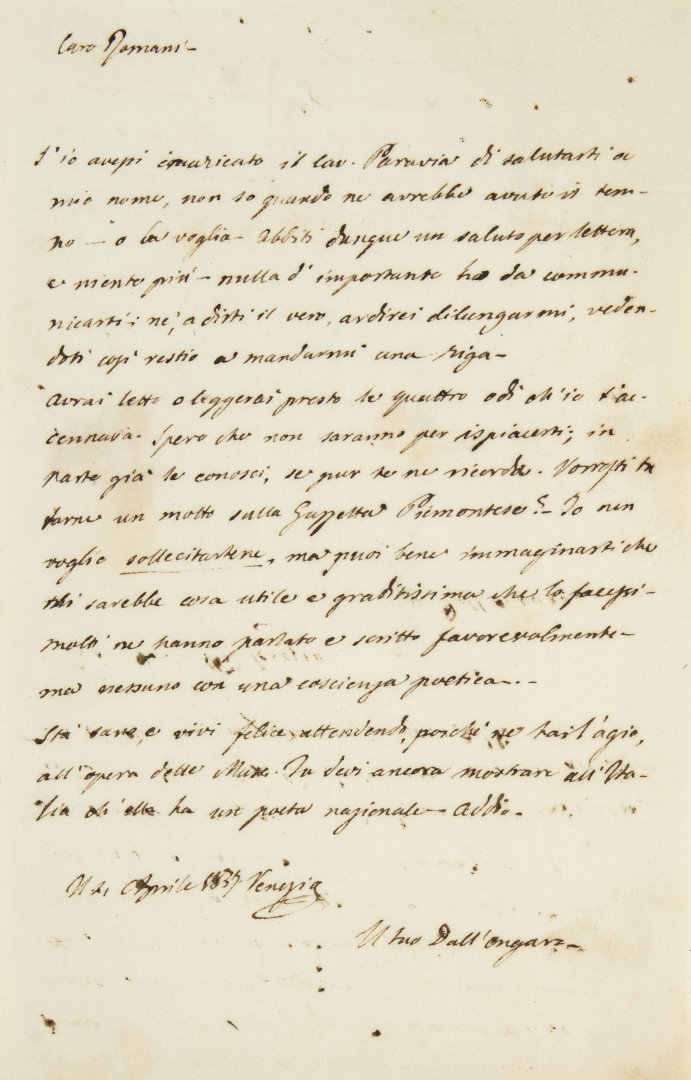 Caro Romani –
S'io avessi incaricato il Cav. Paravia di salutarti a
mio nome, non so quando ne avrebbe avuto il tem-
po – o la voglia – Abbiti dunque un saluto per lettera,
e niente più – nulla d'importante ho da commu-
nicarti: nè, a dirti il vero, ardirei dilungarmi, veden-
doti così restio a mandarmi una riga –
Avrai letto o leggerai presto le quattro odi ch'io t'ac-
cennava. Spero che non saranno per ispiacerti; in
parte già le conosci, se pur te ne ricorda. Vorresti tu
farne un motto sulla Gazzetta Piemontese? – Io non
voglio sollecitartene, ma puoi bene immaginarti che
mi sarebbe cosa utile e graditissima che lo facessi –
Molti ne hanno parlato e scritto favorevolmente –
ma nessuno con una coscienza poetica. –
Sta sano, e vivi felice, attendendo, poichè ne hai l'agio,
all'opera delle Muse. Tu devi ancora mostrare all'Ita-
lia ch'ella ha un poeta nazionale – Addio –
Aprile 1837 Venezia
Il tuo Dall'Ongaro –